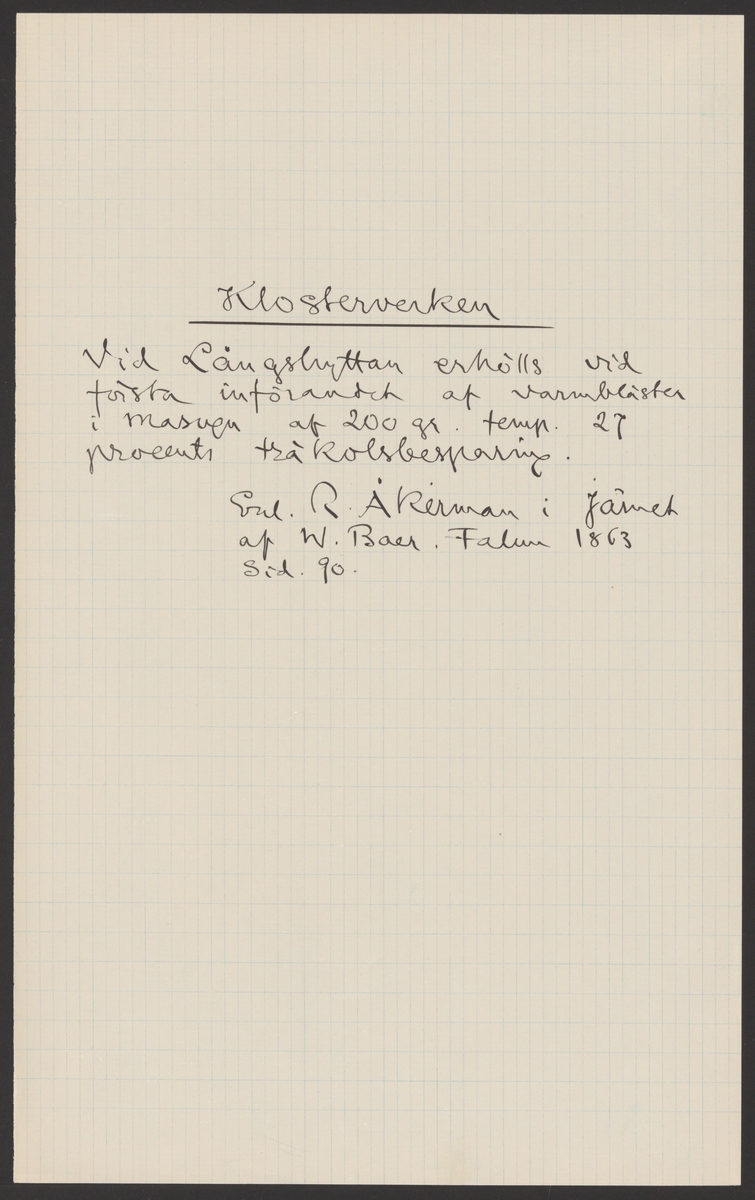 Klosterverken
Vid Långshyttan erhölls vid
första införandet af varmbläster
i masugn af 200 gr. temp. 27
procents träkolsbesparing.
Enl. R. Åkerman i Järnet
af W. Baer. Falun 1863
Sid. 90.